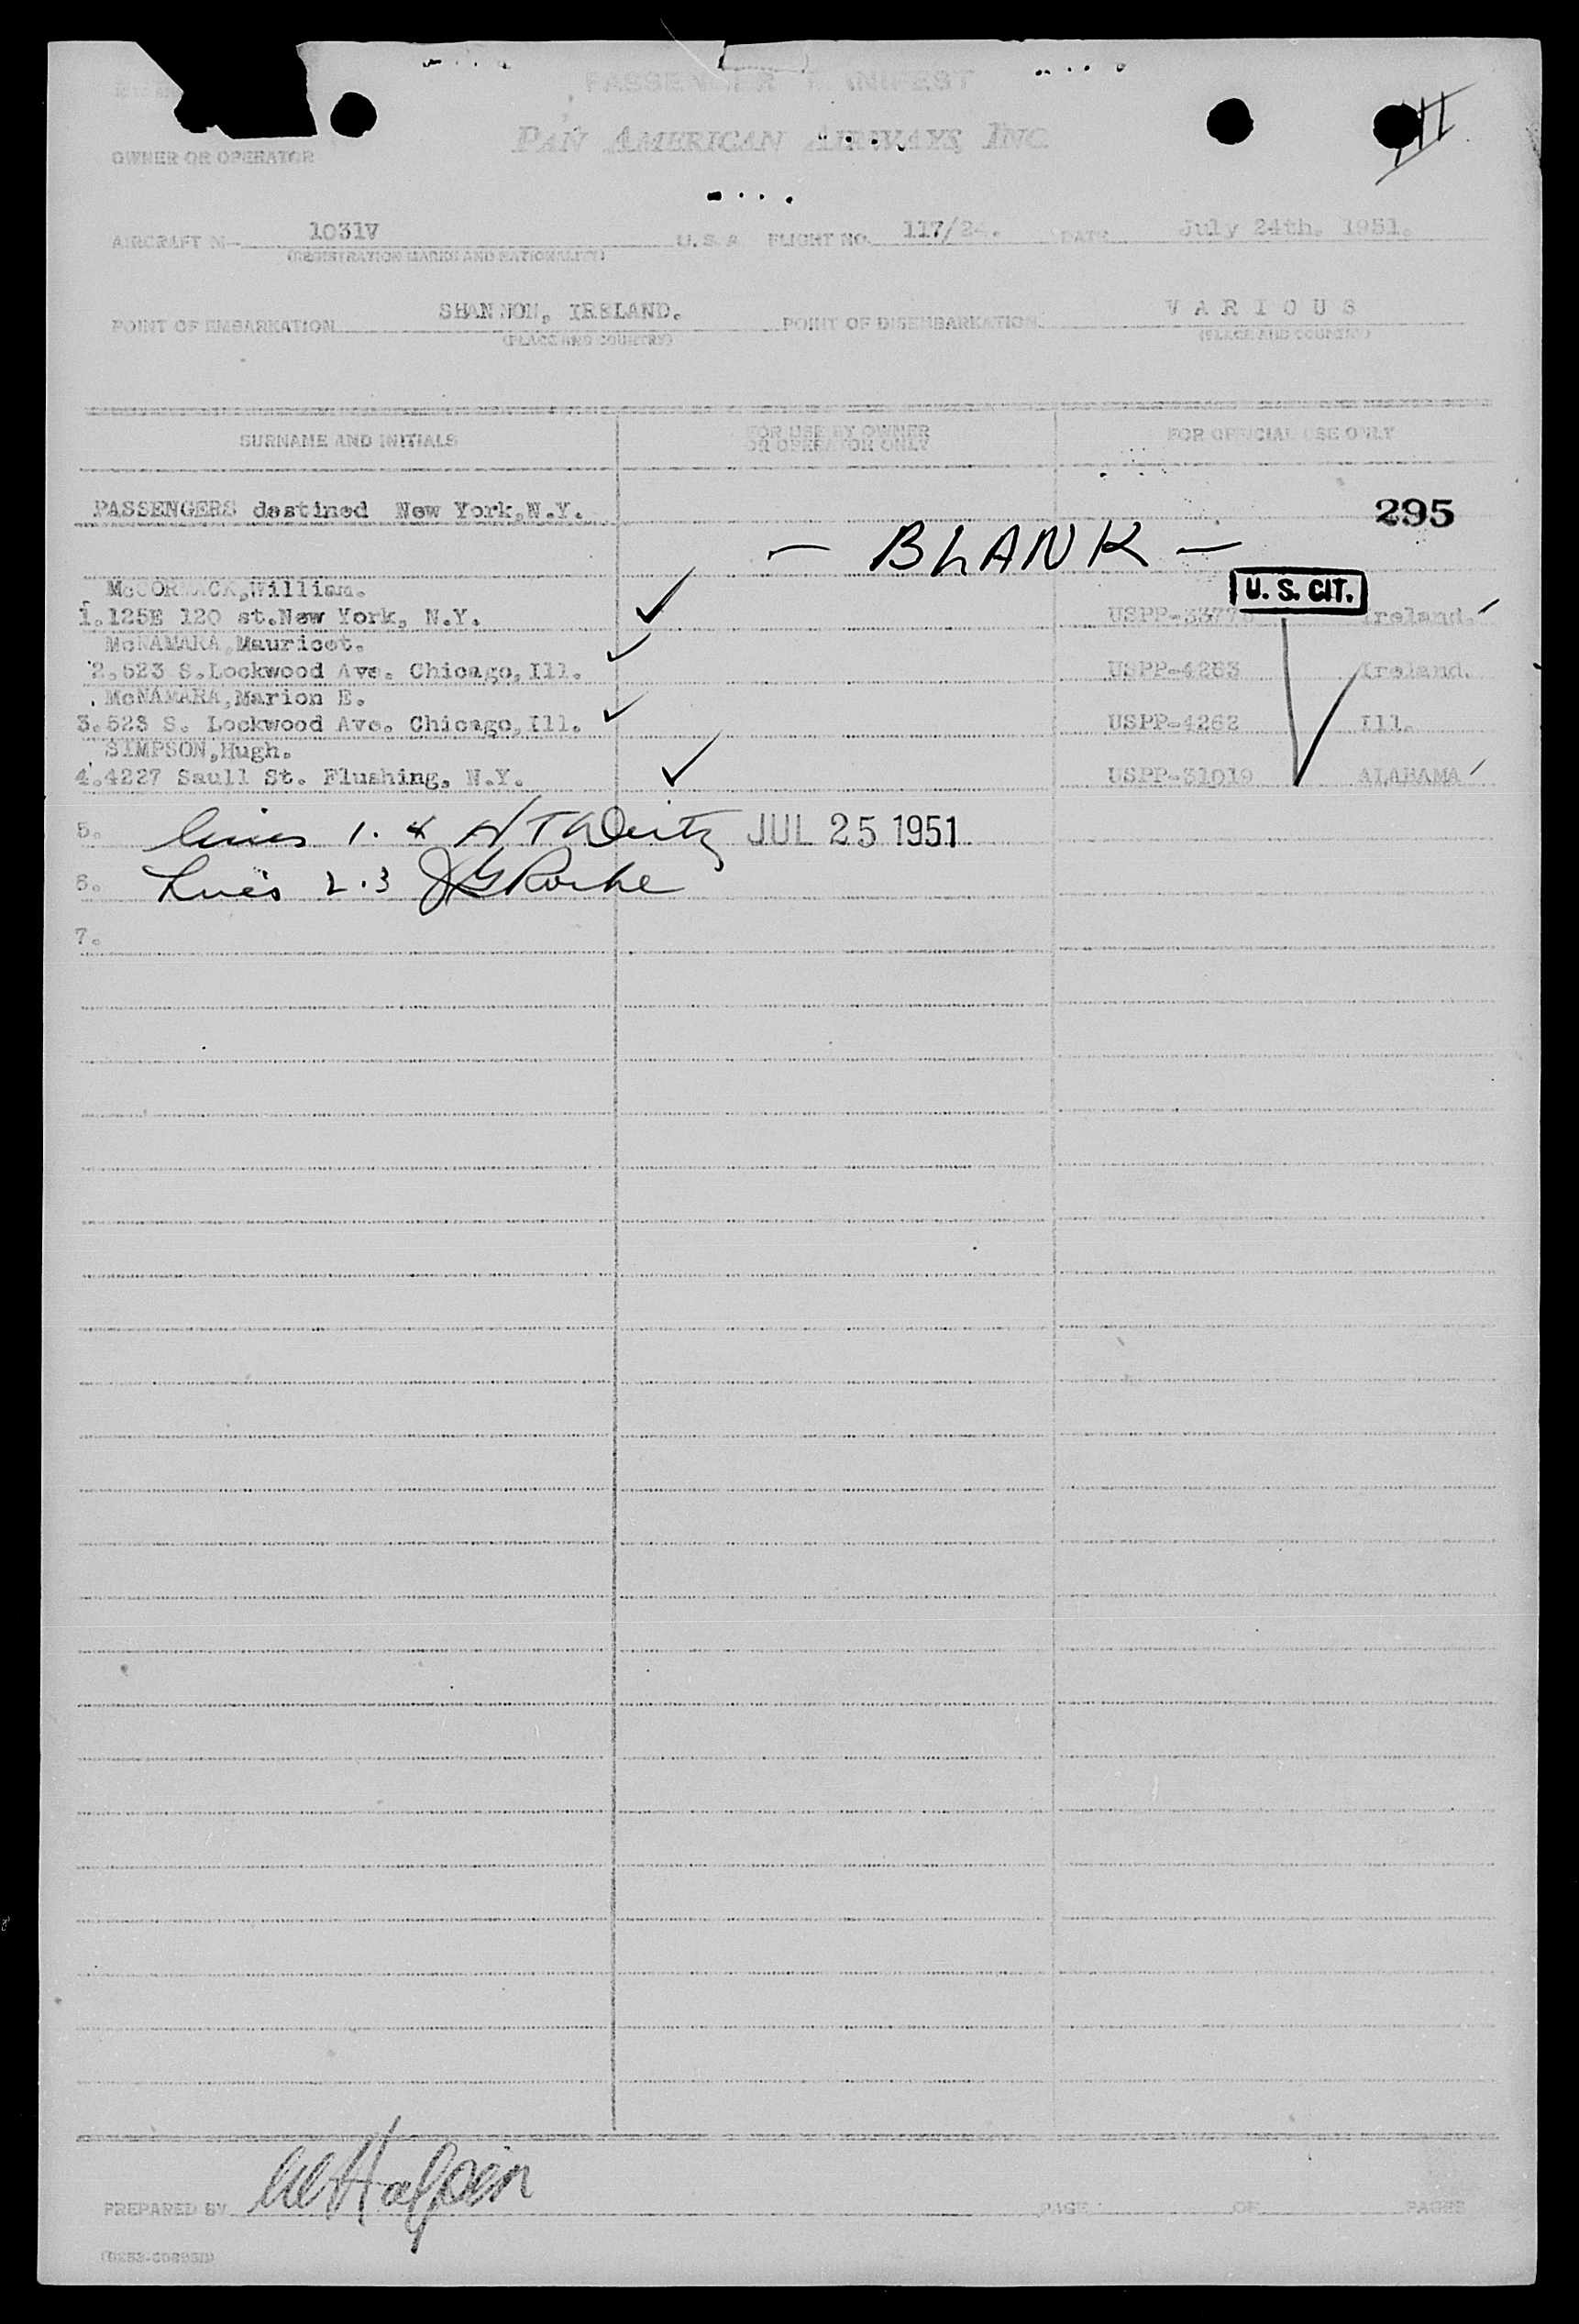 PASSENGER MANIFEST
PAN AMERICAN AIRWAYS, INC.
OWNER OR OPERATOR
AIRCRAFT N— 1031V U. S. A. FLIGHT NO. 117/24. DATE July 24th. 1951.
(REGISTRATION MARKS AND NATIONALITY)
POINT OF EMBARKATION SHANNON, IRELAND. POINT OF DISEMBARKATION V A R I O U S
(PLACE AND COUNTRY) (PLACE AND COUNTRY)
SURNAME AND INITIALS FOR USE BY OWNER OR OPERATOR ONLY FOR OFFICIAL USE ONLY
PASSENGERS destined New York,N.Y. 295
— BLANK —
McCORMACK,William. U. S. CIT.
1.125E 120 st.New York, N.Y. Ireland.
McNAMARA,Mauricet.
2.523 S.Lockwood Ave. Chicago,Ill. USPP-4263 Ireland.
McNAMARA,Marion E.
3.523 S. Lockwood Ave. Chicago,Ill. USPP-4262 Ill.
SIMPSON,Hugh.
4.4227 Saull St. Flushing, N.Y. USPP-31019 ALABAMA
5. lines 1. 4 JUL 25 1951
6. Lines 2.3
7.
PREPARED BY PAGE OF PAGES